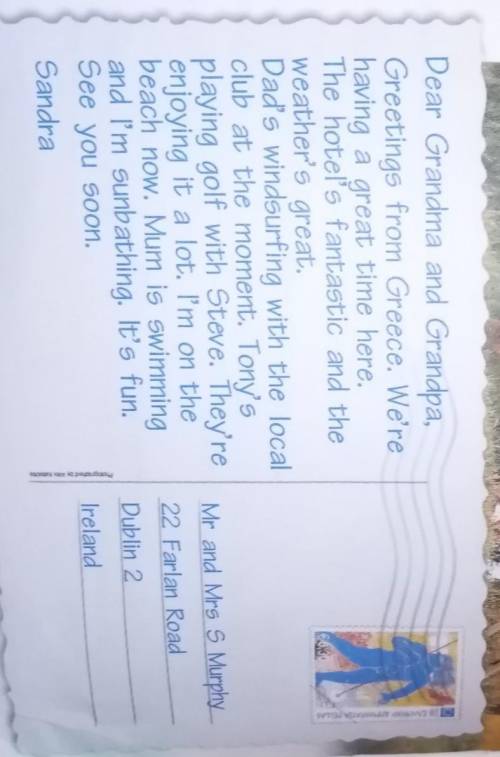 Dear Grandma and Grandpa,
Greetings from Greece. We're
having a great time here.
The hotel's fantastic and the
weather's great.
Dad's windsurfing with the local
club at the moment. Tony's
playing golf with Steve. They're
enjoying it a lot. I'm on the
beach now. Mum is swimming
and I'm sunbathing. It's fun.
See you soon.
Sandra
Mr and Mrs S Murphy
22 Farlan Road
Dublin 2
Ireland
Photographed by